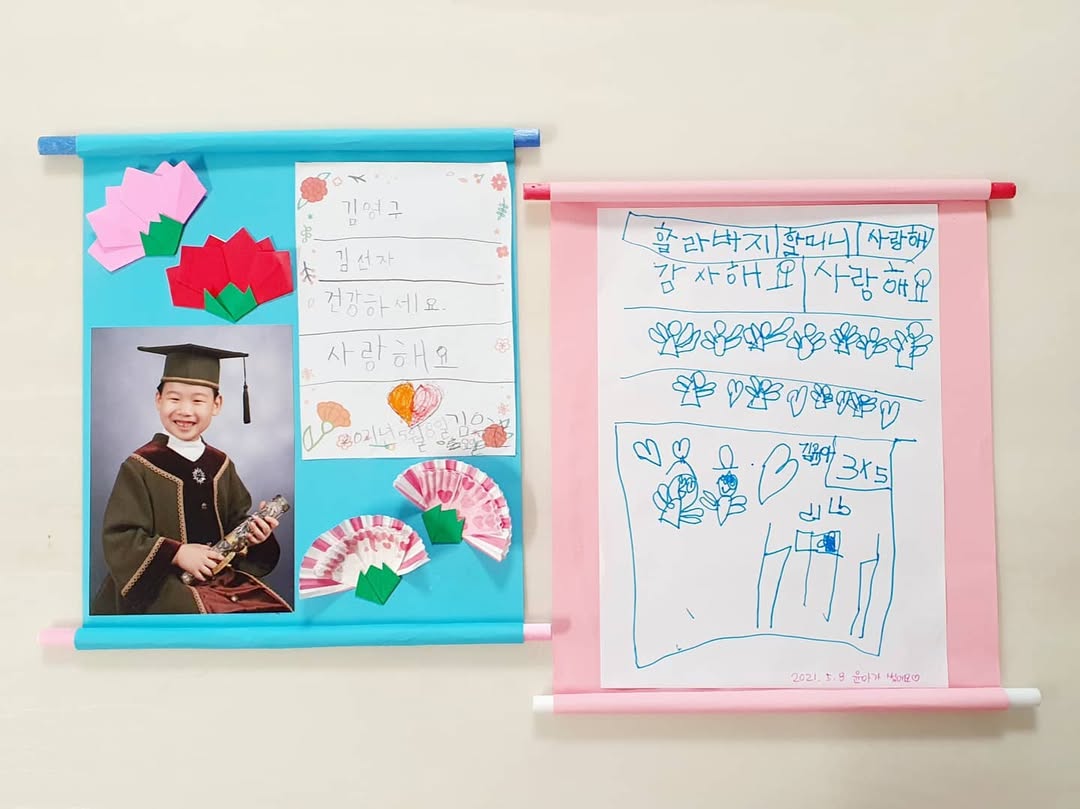 김영구
김선자
건강하세요.
사랑해요
2021년 5월 8일
할라버지 할머니 사랑해
감사해요 사랑해요
3X5
2021. 5. 8 윤아가